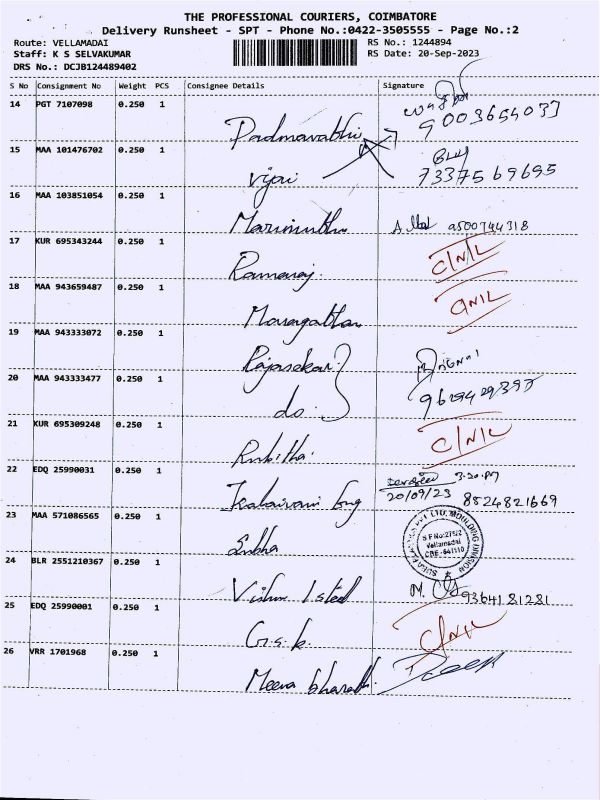 THE PROFESSIONAL COURIERS, COIMBATORE
Delivery Runsheet - SPT - Phone No.:0422-3505555 - Page No.:2
Route: VELLAMADAI
RS No.: 1244894
Staff: K S SELVAKUMAR
RS Date: 20-Sep-2023
DRS No.: DCJB124489402
S No Consignment No Weight PCS Consignee Details Signature
14 PGT 7107098 0.250 1 Padmavathi 9003654037
15 MAA 101476702 0.250 1 Vijai 7337569695
16 MAA 103851054 0.250 1 Marimuthu 9500744318
17 KUR 695343244 0.250 1 Ramaraj. C/N/L
18 MAA 943659487 0.250 1 C/N/L
19 MAA 943333072 0.250 1 Rajasekar
20 MAA 943333477 0.250 1 do. 9629429395
21 KUR 695309248 0.250 1 C/N/L
22 EDQ 25990031 0.250 1 3.20.PM
20/09/23 8524821669
23 MAA 571086565 0.250 1 Subha
MOULDING DIVISION
S F No:275/2
Vellamadai
CBE - 641110
24 BLR 2551210367 0.250 1 M. 9364181281
25 EDQ 25990001 0.250 1 G.S.K. C/N/L
26 VRR 1701968 0.250 1 Meera bharath.